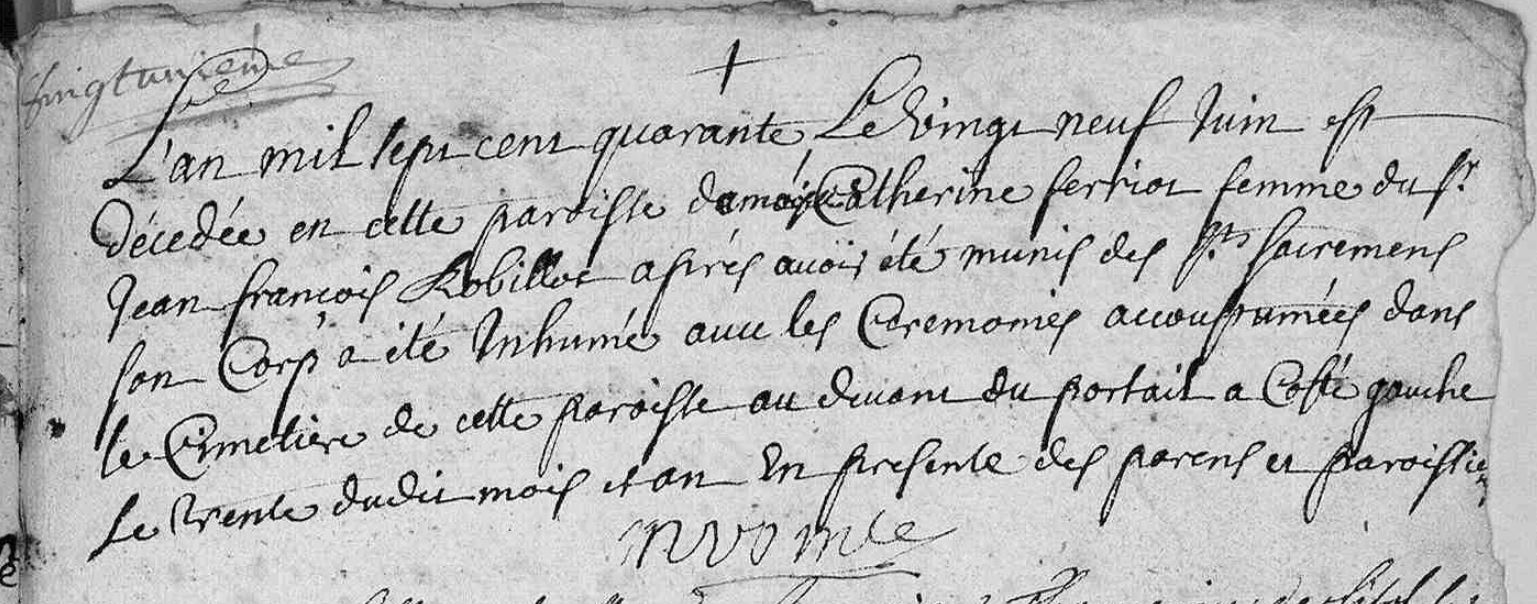 vingtunieme
L'an mil sept cent quarante Le vingt neuf Juin est
décedée en cette paroisse Catherine ferriot femme du sr
Jean françois Robillot aprés avoir été munis des sts sacremens
son Corp a été Inhumé avec les Ceremonies accoustumées dans
le Cimetiere de cette paroisse au devant du portail a Costé gauche
Le trente dudit mois et an En presente des parens et paroissien